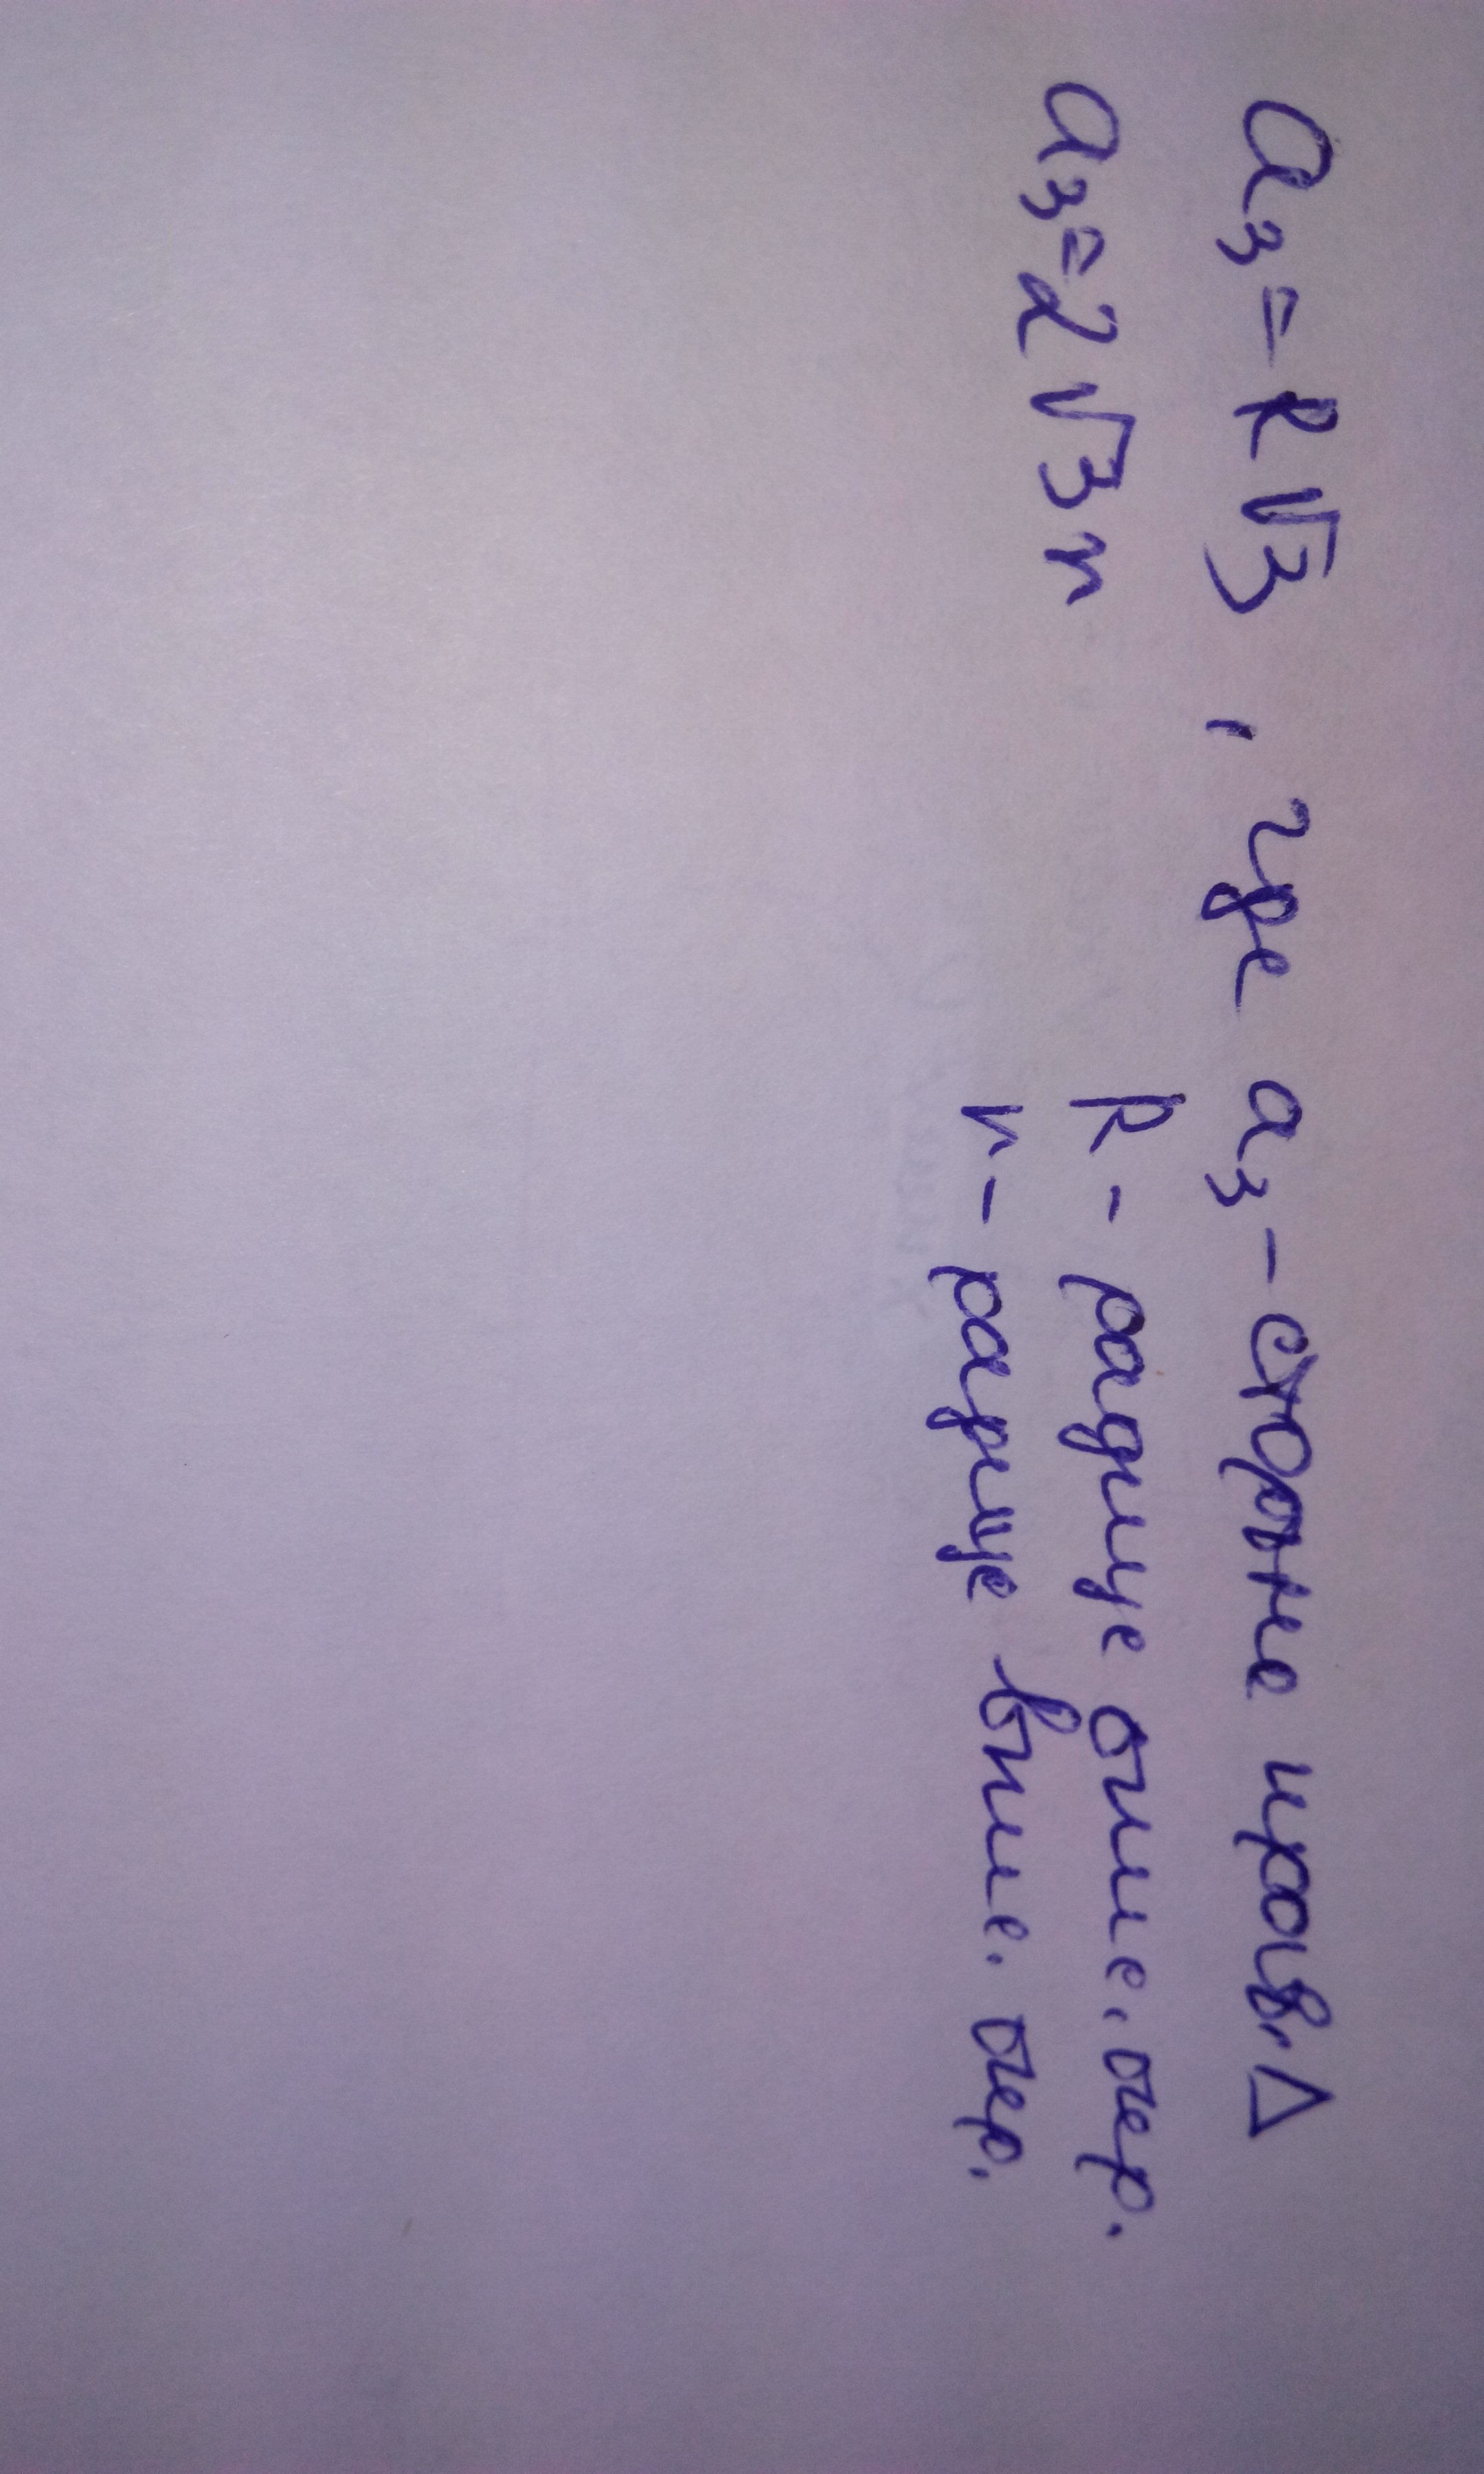 a₃ = R√3 , где a₃ – сторона прав. Δ
a₃ = 2√3 r R – радиус опис. окр.
r – радиус впис. окр.